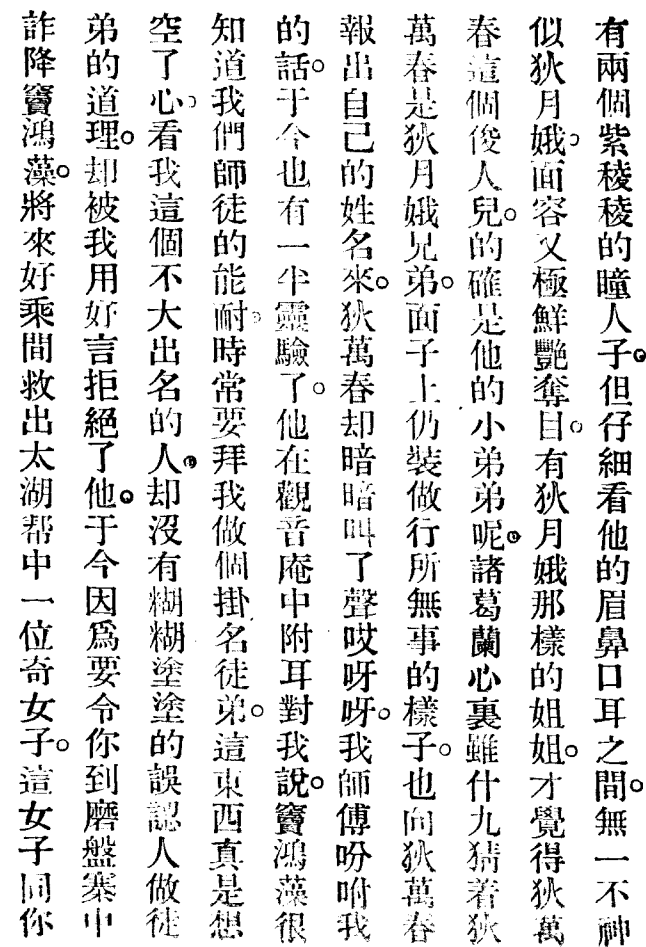 有兩個紫稜稜的瞳人子。但仔細看他的眉鼻口耳之間。無一不神
似狄月娥。面容又極鮮艷奪目。有狄月娥那樣的姐姐。才覺得狄萬
春這個俊人兒。的確是他的小弟弟呢。諸葛蘭心裏雖什九猜着狄
萬春是狄月娥兄弟。面子上仍裝做行所無事的樣子。也向狄萬春
報出自己的姓名來。狄萬春却暗暗叫了聲哎呀呀。我師傅吩咐我
的話。于今也有一半靈驗了。他在觀音庵中附耳對我說。竇鴻藻很
知道我們師徒的能耐。時常要拜我做個掛名徒弟。這東西真是想
空了心。看我這個不大出名的人。却沒有糊糊塗塗的誤認人做徒
弟的道理。却被我用好言拒絕了他。于今因爲要令你到磨盤寨中
詐降竇鴻藻。將來好乘間救出太湖帮中一位奇女子。這女子同你